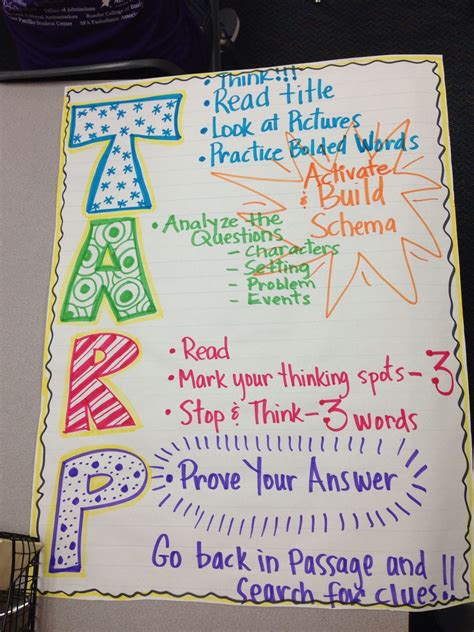 Office of Admissions
Student Center
T
• Think!!!
• Read title
• Look at Pictures
• Practice Bolded Words
Activate
& Build
Schema
A
• Analyze the
Questions
– Characters
– Setting
– Problem
– Events
R
• Read
• Mark your thinking spots – 3
• Stop & Think – 3 words
P
• Prove Your Answer
Go back in Passage and
search for clues!!